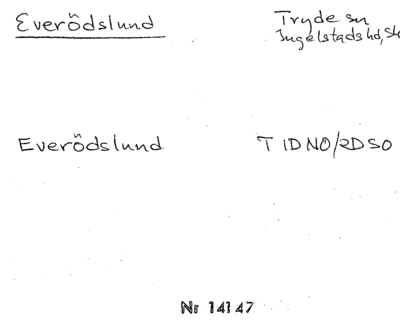 Everödslund
Tryde sn
Ingelstads hd, Sk
Everödslund
T 1D NO/2D SO
Nr 14147